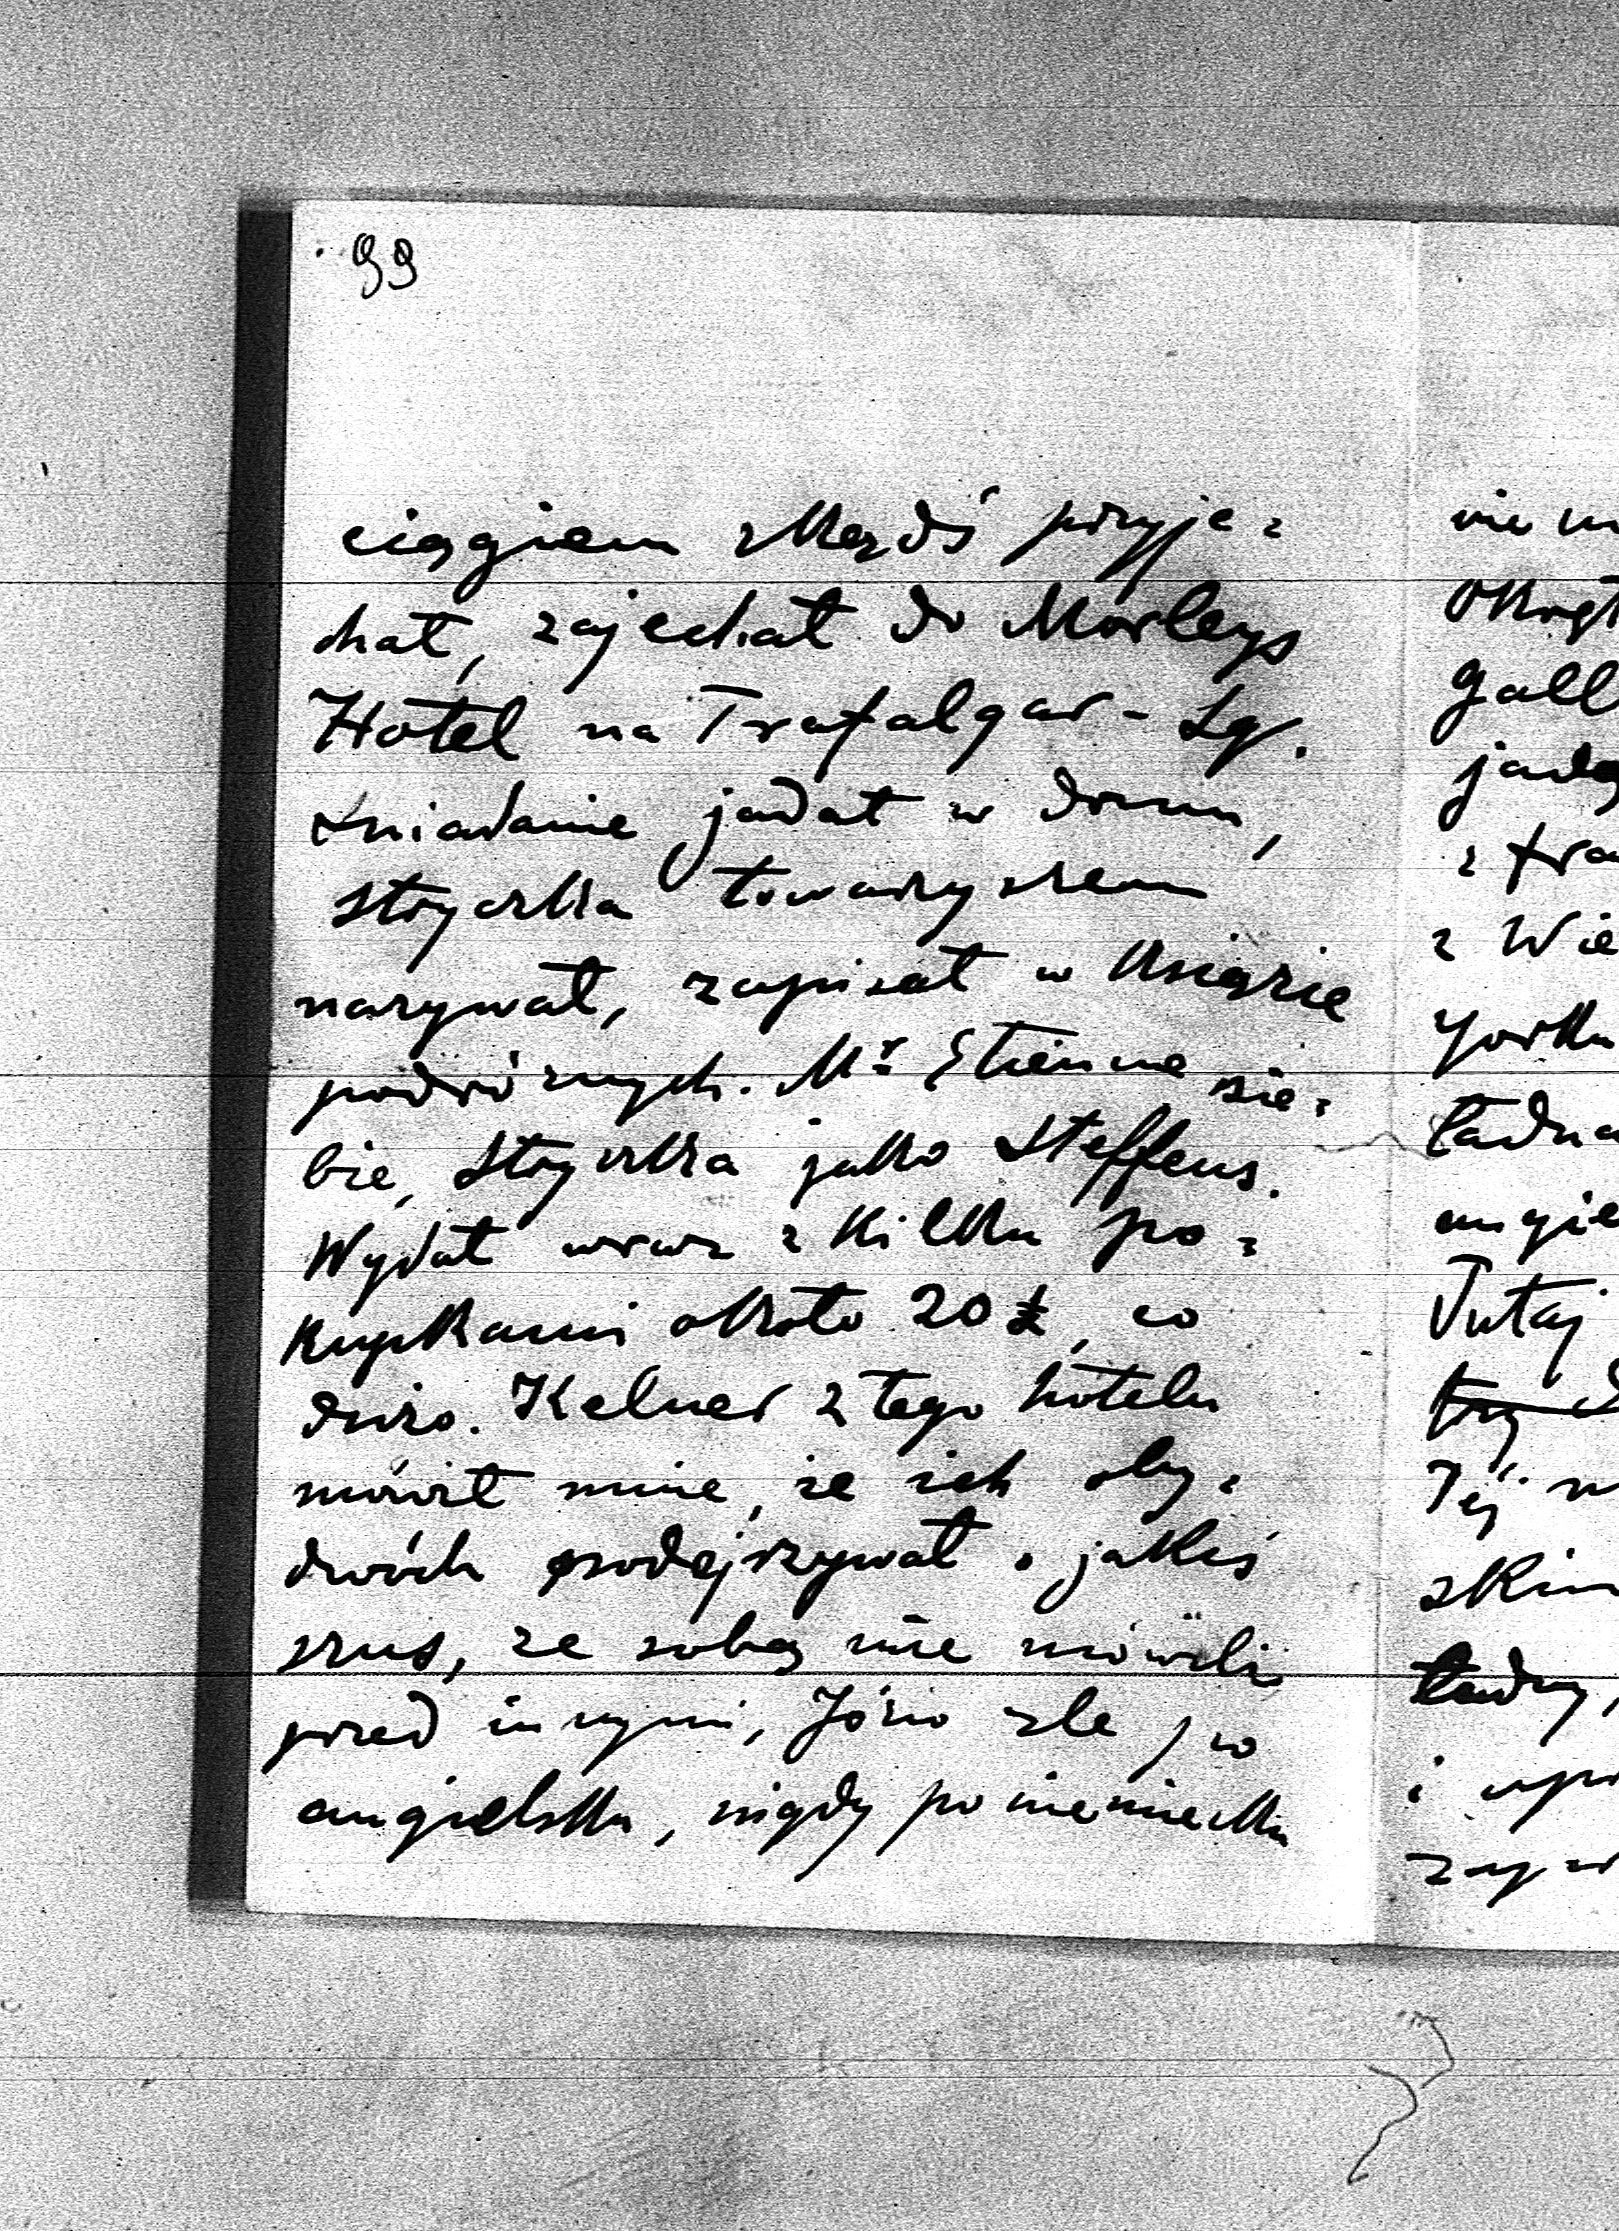 99
ciągiem skądś przyje=
chał, zajechał do Morleys
Hotel na Trafalgar-Sq.
śniadanie jadał w domu,
Stryczka towarzyszem
nazywał, zapisał w książcie
podróżnych. Mr Etienne sie=
bie, Stryczka jako Steffens.
Wydał wraz z kilku po=
kupkami około 20 £, co
dużo. Kelner z tego hotelu
mówił mnie, że ich oby=
dwóch podejrzywał o jakiś
szus, ze sobą nie mówili
przed innymi, Józio źle po
angielsku, nigdy po niemiecku
nie
gall
z
z Wie
yorku
ładna
angie
Tutaj
try
Tej
skim
ładny,
i